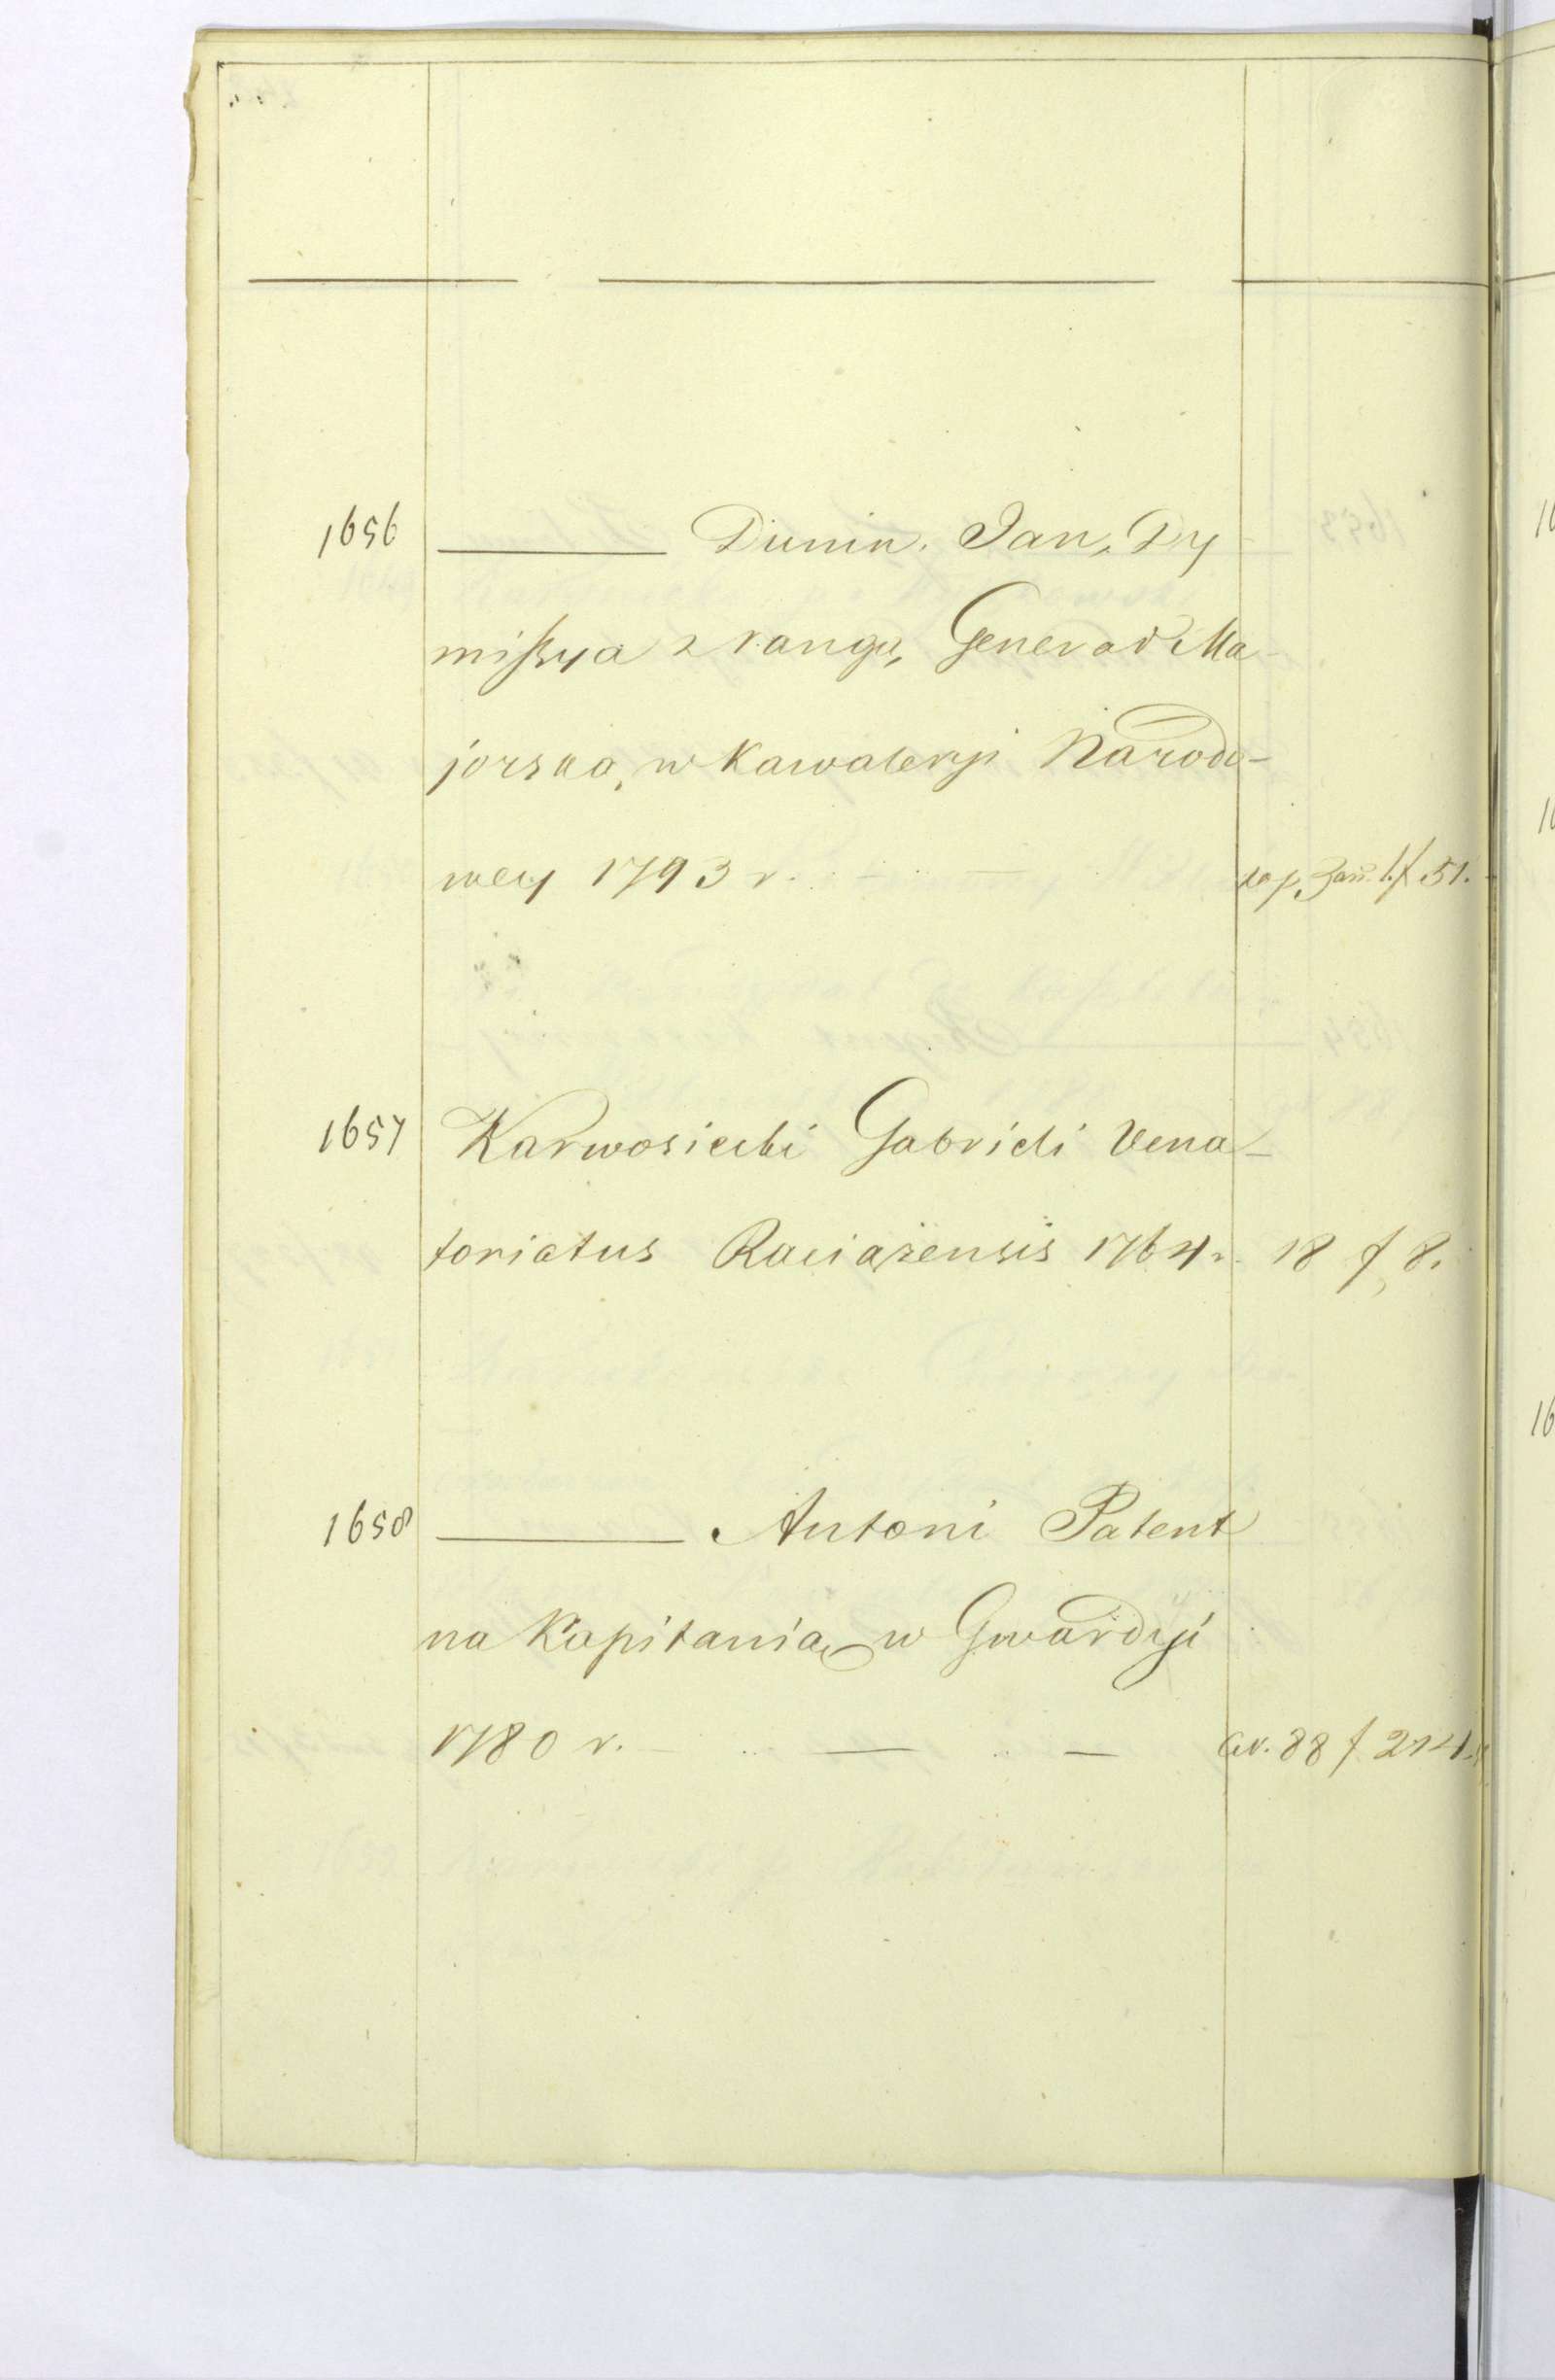 1656 ——— Dunin. Jan, Dy
mißya z rangą General Ma-
jorską, w Kawaleryi Narodo-
wey 1793 r. — — f 51.
1657 Karwosiecki Gabrieli Vena-
toriatus Raciążensis 1764 r. 18 f 8.
1658 ——— Antoni Patent
na Kapitania w Gwardyi
1780 r. — — — 88 f 214.